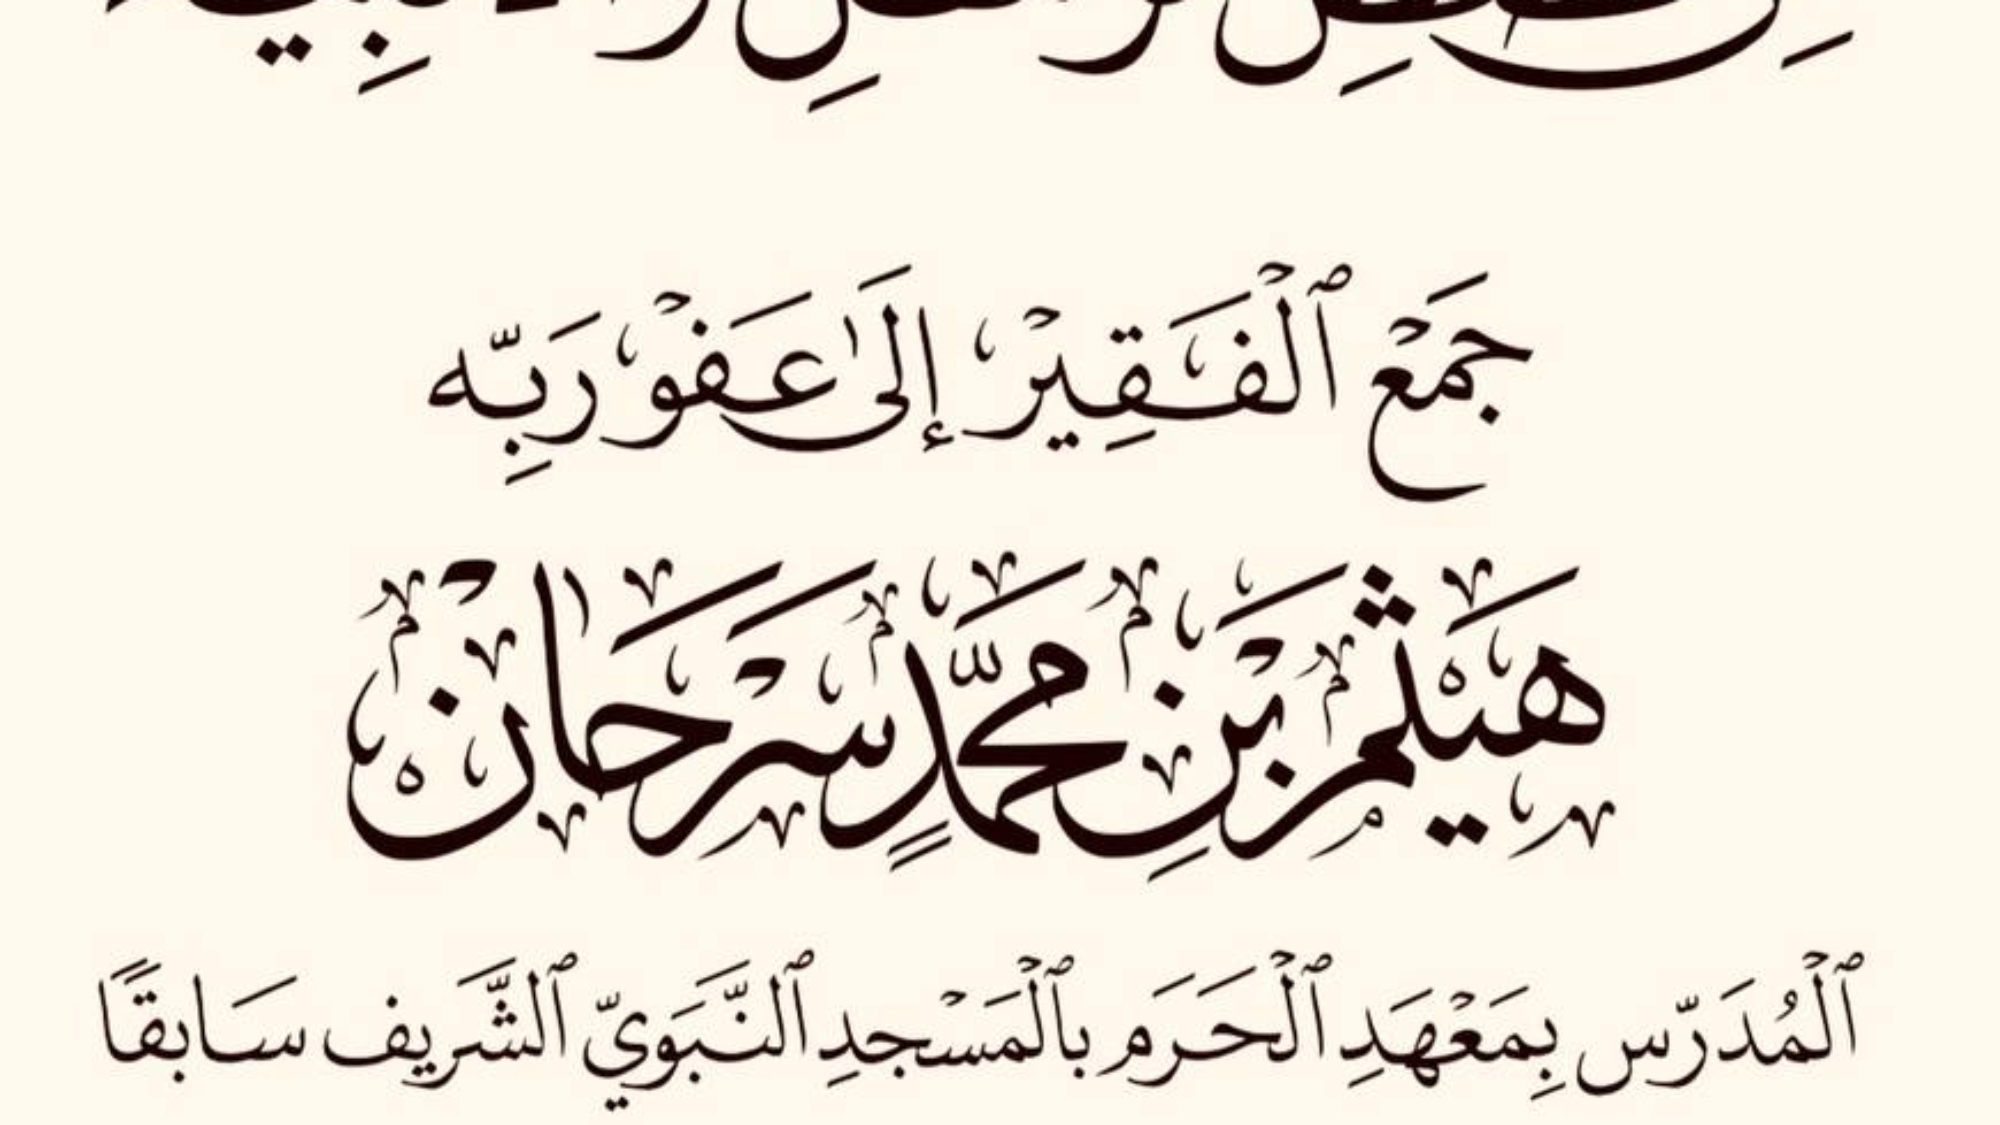 جَمْع ٱلْفَقِيْر إِلَىٰ عَفْوْ رَبِّه
هَيْثَم بْنِ مُحَمَّدٍ سَرْحَان
ٱلْمُدَرّس بِمَعْهَدِ ٱلْحَرَم بِٱلْمَسْجِدِ ٱلنَّبَوِيّ ٱلشَّرِيف سَابقًا